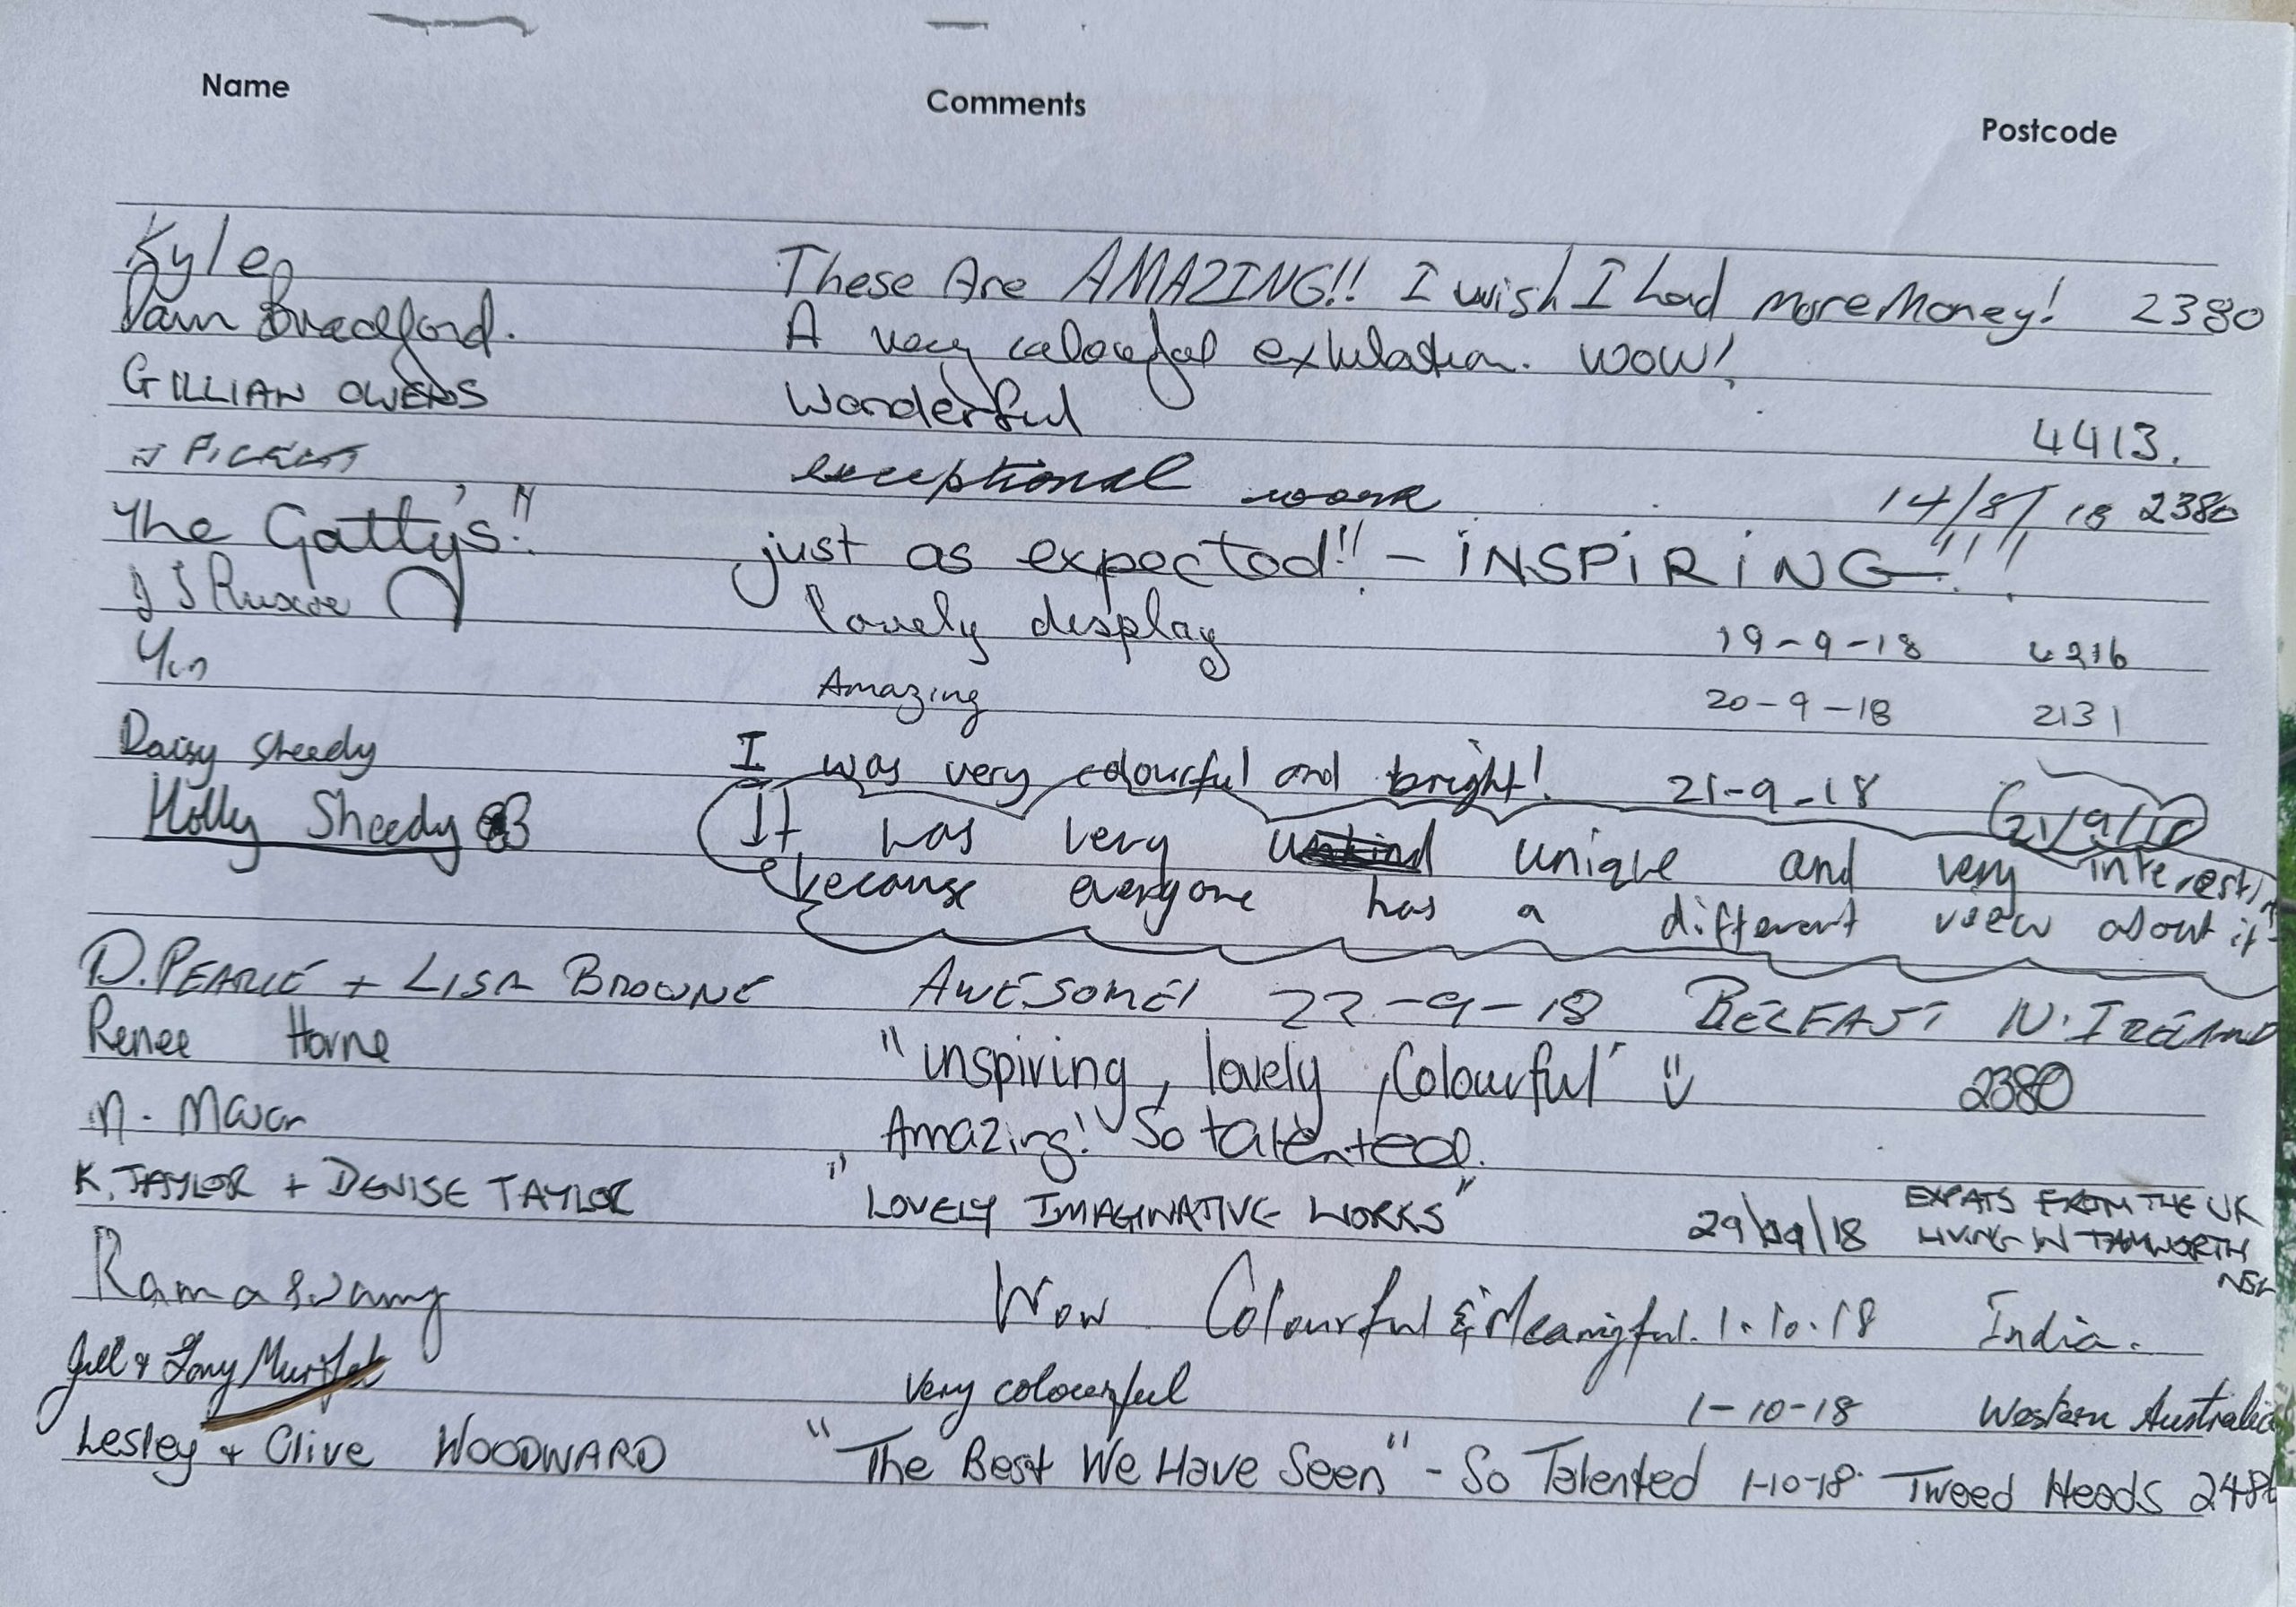 Name Comments Postcode
Kyle These Are AMAZING!! I wish I had more Money! 2380
Pam Bradford. A very colourful exhibation. WOW!
GILLIAN OWENS Wonderful 4413.
exceptional work 14/8/18 2380
The Gatty's!! just as expected!! - INSPIRING!!!
lovely display 19-9-18 4216
Yin Amazing 20-9-18 2131
Daisy Sheedy I was very colourful and bright! 21-9-18 21/9/18
Holly Sheedy It was very unique and very interesting
because everyone has a different view about it
D. PEARCE + LISA BROWNE AWESOME! 22-9-18 BELFAST N. IRELAND
Renee Horne "inspiring, lovely, Colourful" 2380
Amazing! So talented.
K. TAYLOR + DENISE TAYLOR "LOVELY IMAGINATIVE WORKS" 29/09/18 EXPATS FROM THE UK
LIVING IN TAMWORTH
NSW
Ramaswamy Wow Colourful & Meaningful. 1.10.18 India.
Jill & Tony very colourful 1-10-18 Western Australia
Lesley & Clive WOODWARD "The Best We Have Seen" - So Talented 1-10-18 Tweed Heads